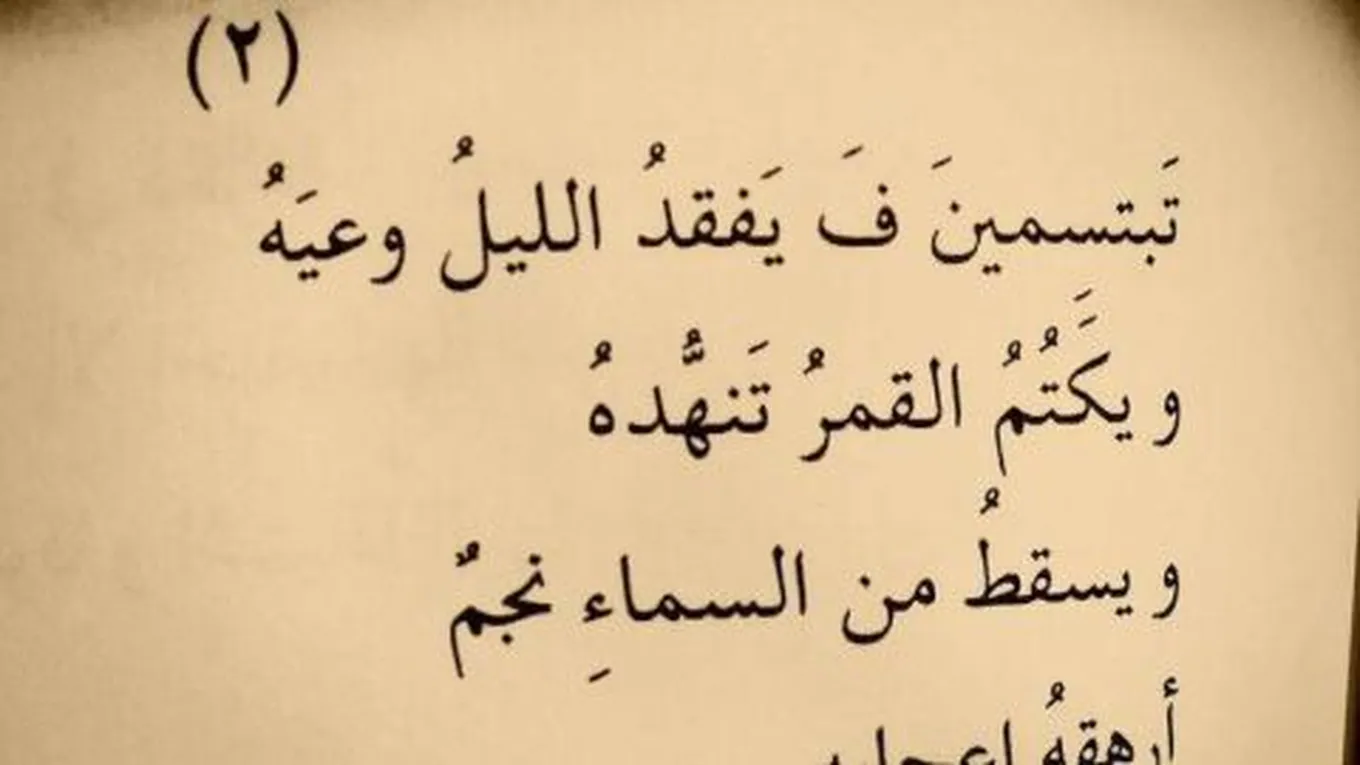 (٢)
تَبتسمينَ فَ يَفقدُ الليلُ وعيَهُ
و يكَتُمُ القمرُ تَنهُّدهُ
و يسقطُ من السماءِ نجمٌ
أرهقهُ